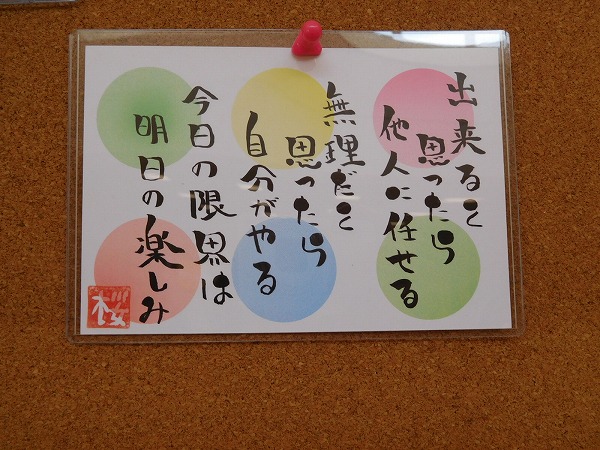 出来ると
思ったら
他人に任せる
無理だと
思ったら
自分がやる
今日の限界は
明日の楽しみ
桜